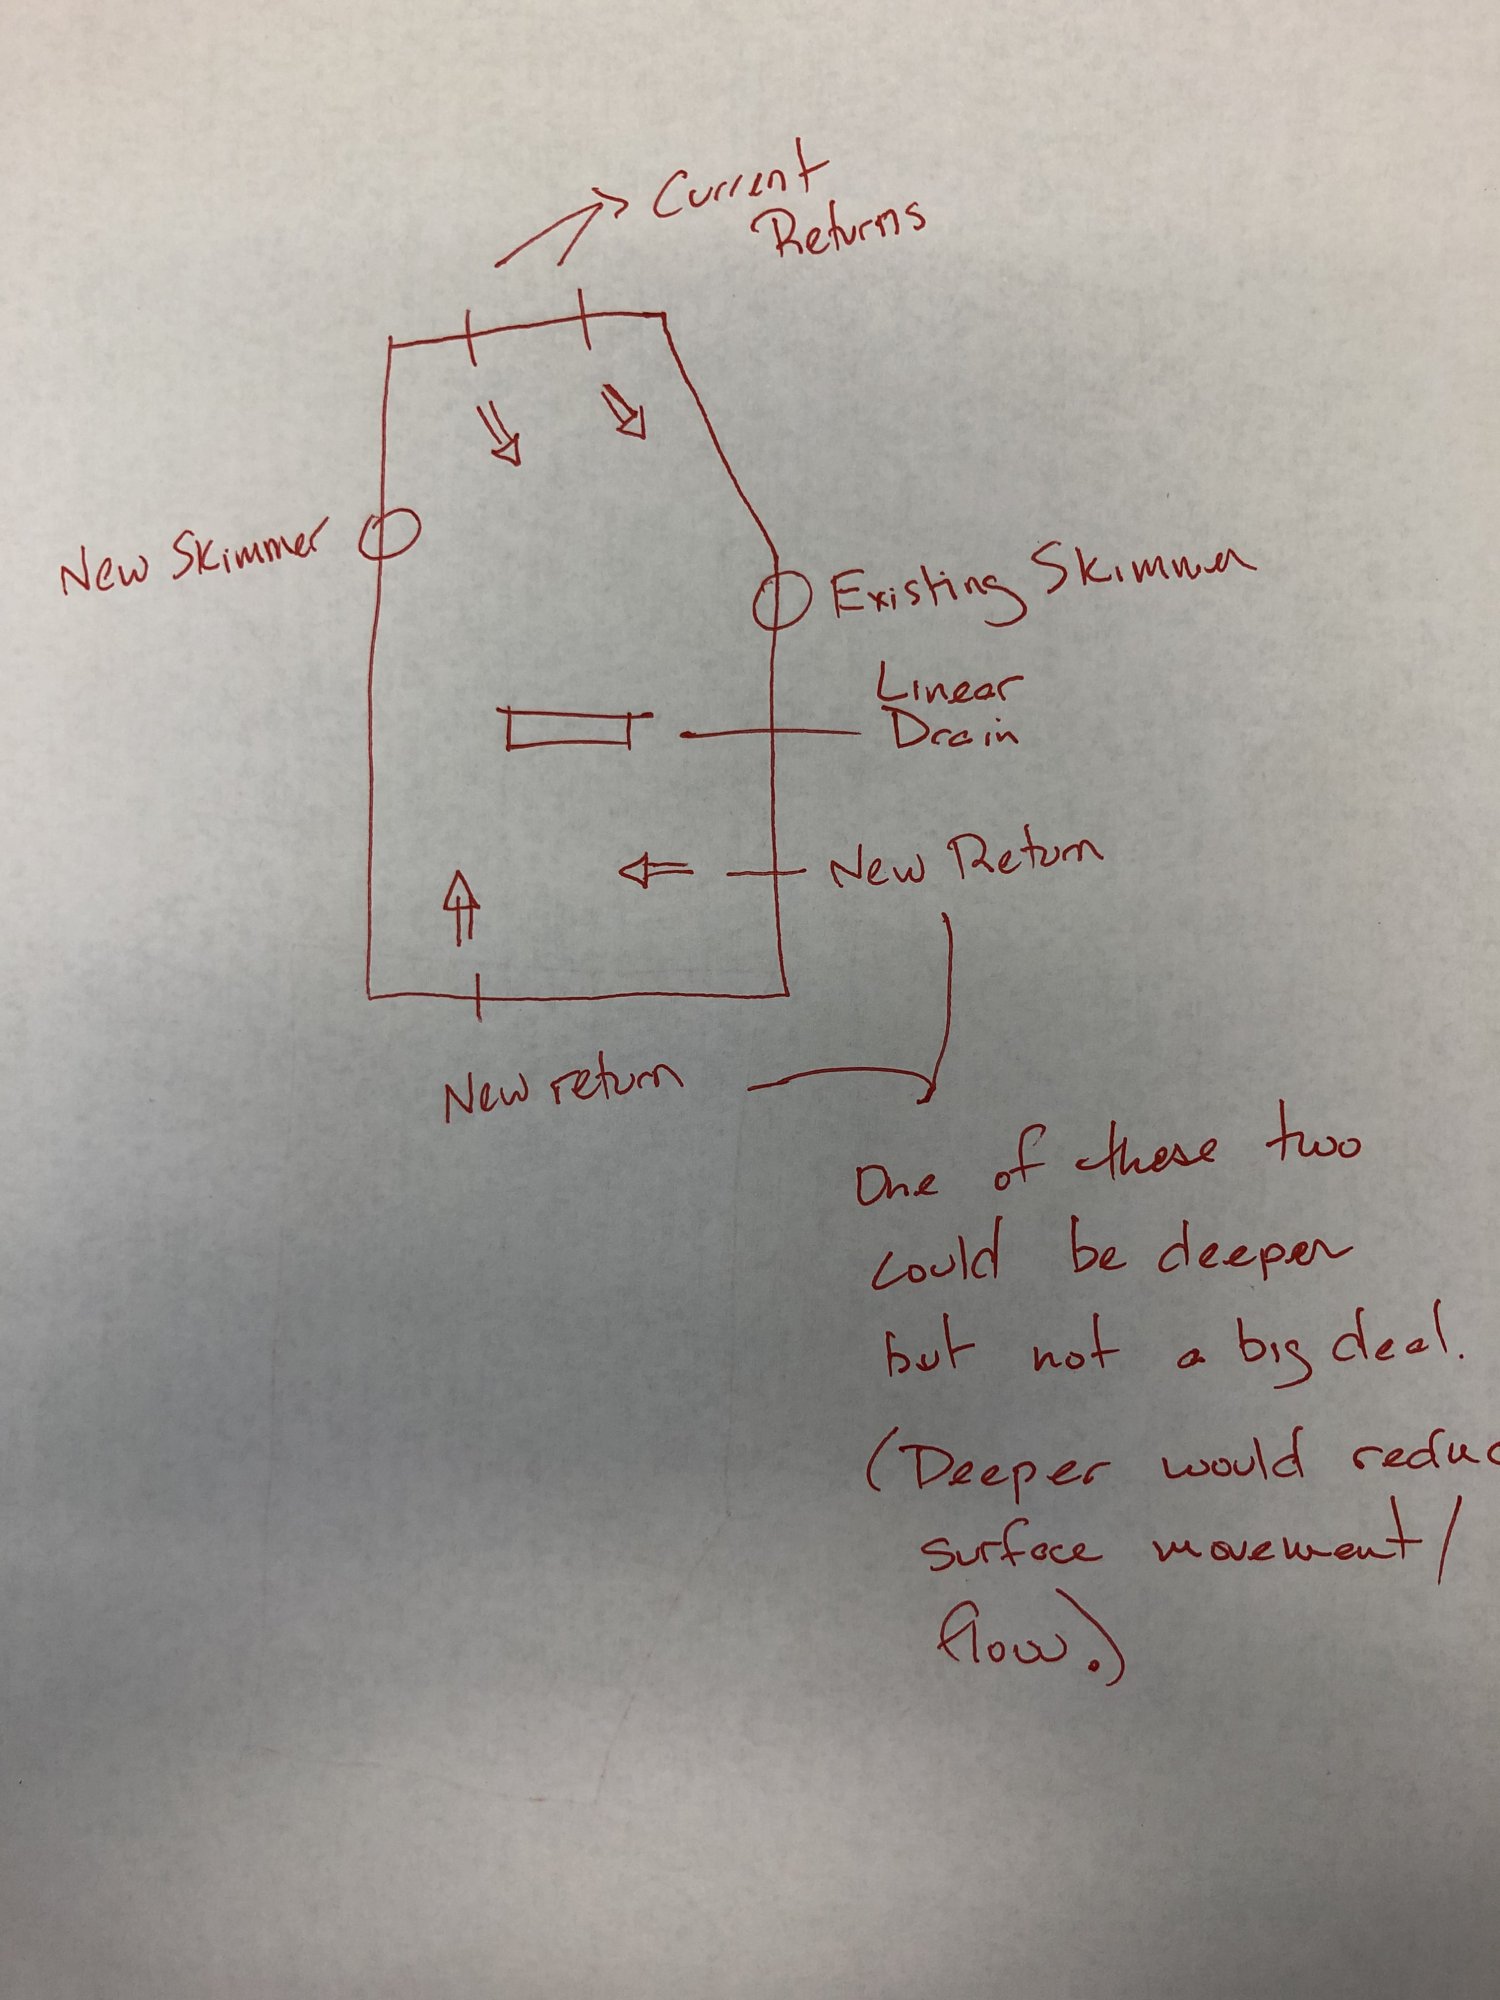 Current
Returns
New Skimmer
Existing Skimmer
Linear
Drain
New Return
New return
One of these two
could be deeper
but not a big deal.
(Deeper would reduc
surface movement/
flow.)